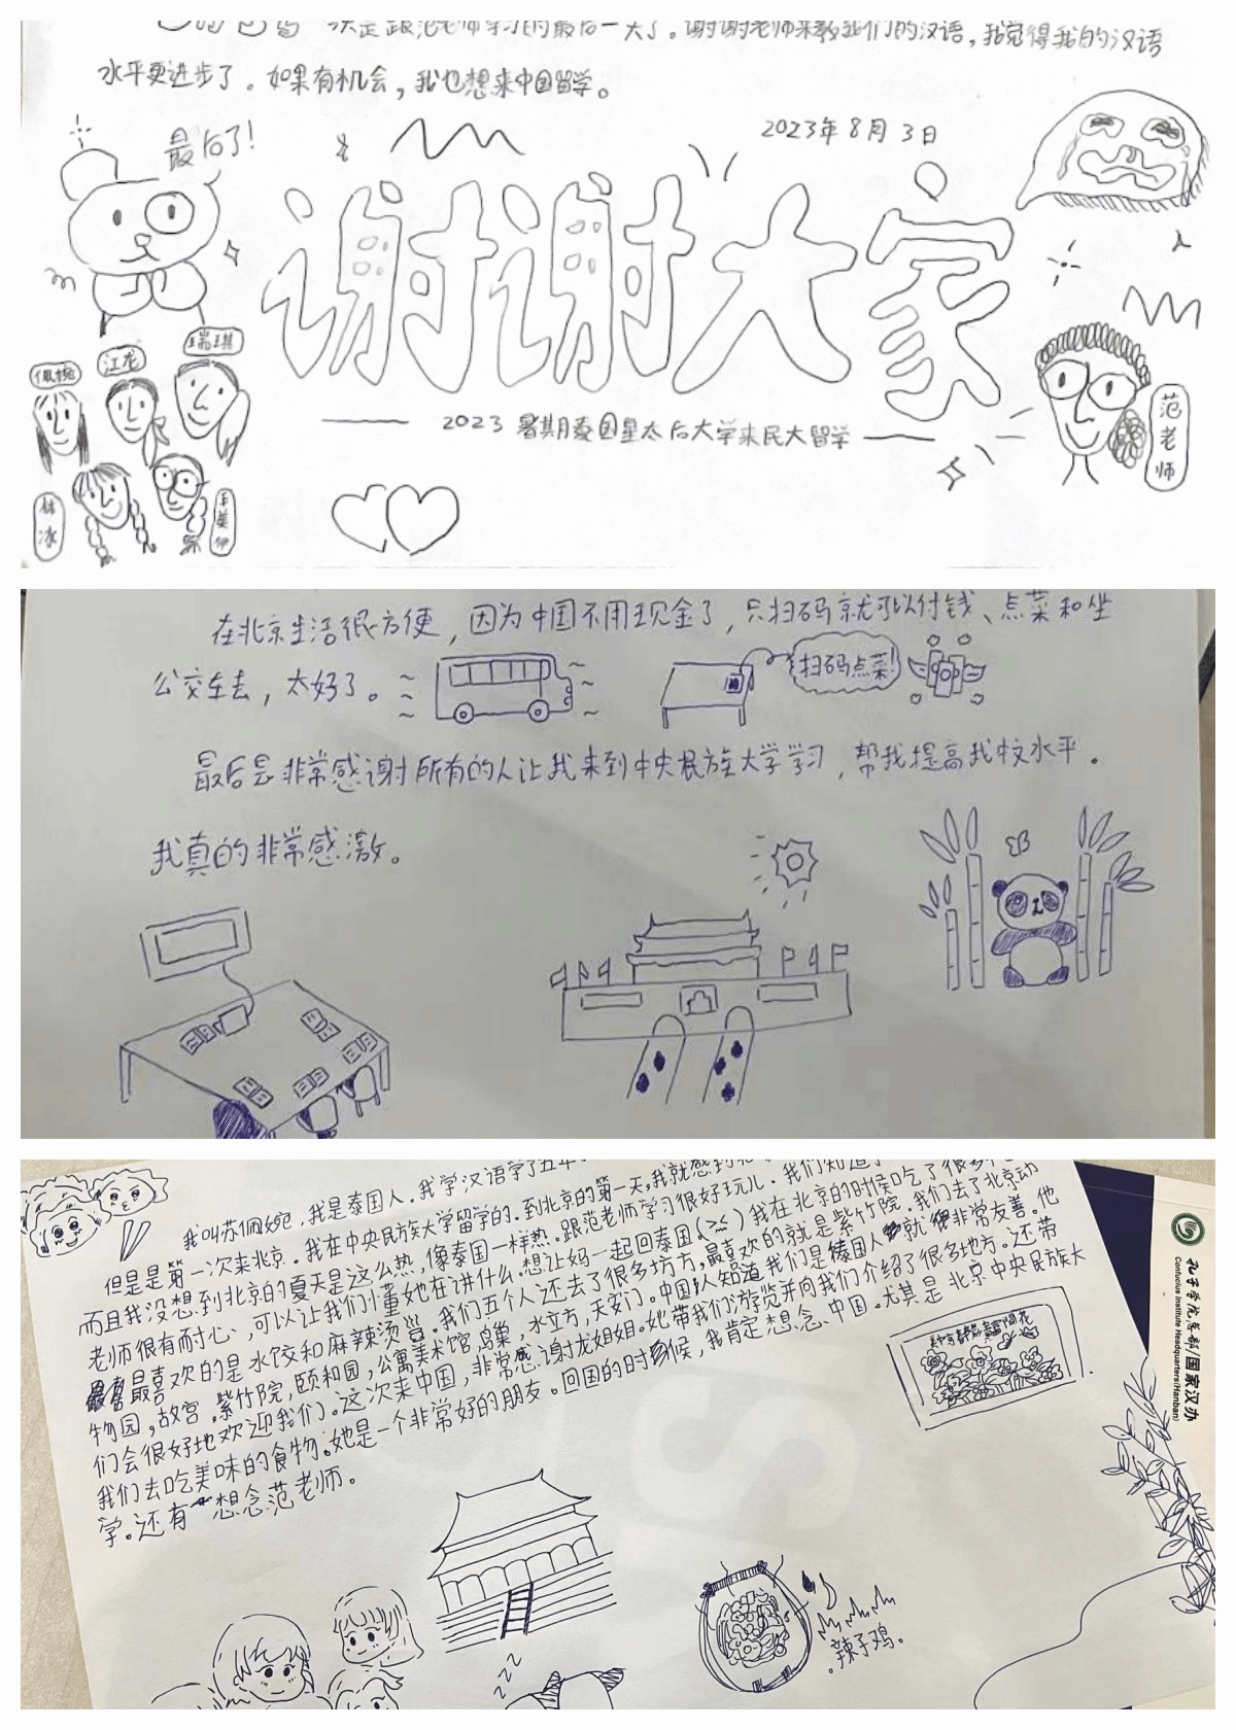 是跟范老师学习的最后一天了。谢谢老师来教我们的汉语，我觉得我的汉语
水平更进步了。如果有机会，我也想来中国留学。
最后了!
2023年8月3日
谢谢大家
瑞琪
江龙
佩婉
范老师
2023 暑期泰国皇太后大学来民大留学
林冰
在北京生活很方便，因为中国不用现金了，只扫码就可以付钱、点菜和坐
公交车去，太好了。
扫码点菜!
最后是非常感谢所有的人让我来到中央民族大学学习，帮我提高我汉水平。
我真的非常感激。
我叫苏佩婉，我是泰国人。我学汉语学了五年
但是是第一次来北京。我在中央民族大学留学的。到北京的第一天，我就感到
而且我没想到北京的夏天是这么热，像泰国一样热。跟范老师学习很好玩儿。我们知道
老师很有耐心，可以让我们懂她在讲什么。想让妈一起回泰国(>≤)我在北京的时候吃了很多
最喜欢的是水饺和麻辣烫。我们五个人还去了很多坊方，最喜欢的就是紫竹院。我们去了北京动
物园，故宫，紫竹院，颐和园，公寓美术馆，鸟巢，水立方，天安门。中国人知道我们是泰国人就非常友善。他
们会很好地欢迎我们。这次来中国，非常感谢龙姐姐。她带我们游览并向我们介绍了很多地方。还带
我们去吃美味的食物。她是一个非常好的朋友。回国的时候，我肯定想念中国。尤其是北京中央民族大
学。还有想念范老师。
孔子学院总部/国家汉办
Confucius Institute Headquarters(Hanban)
zzz
辣子鸡。